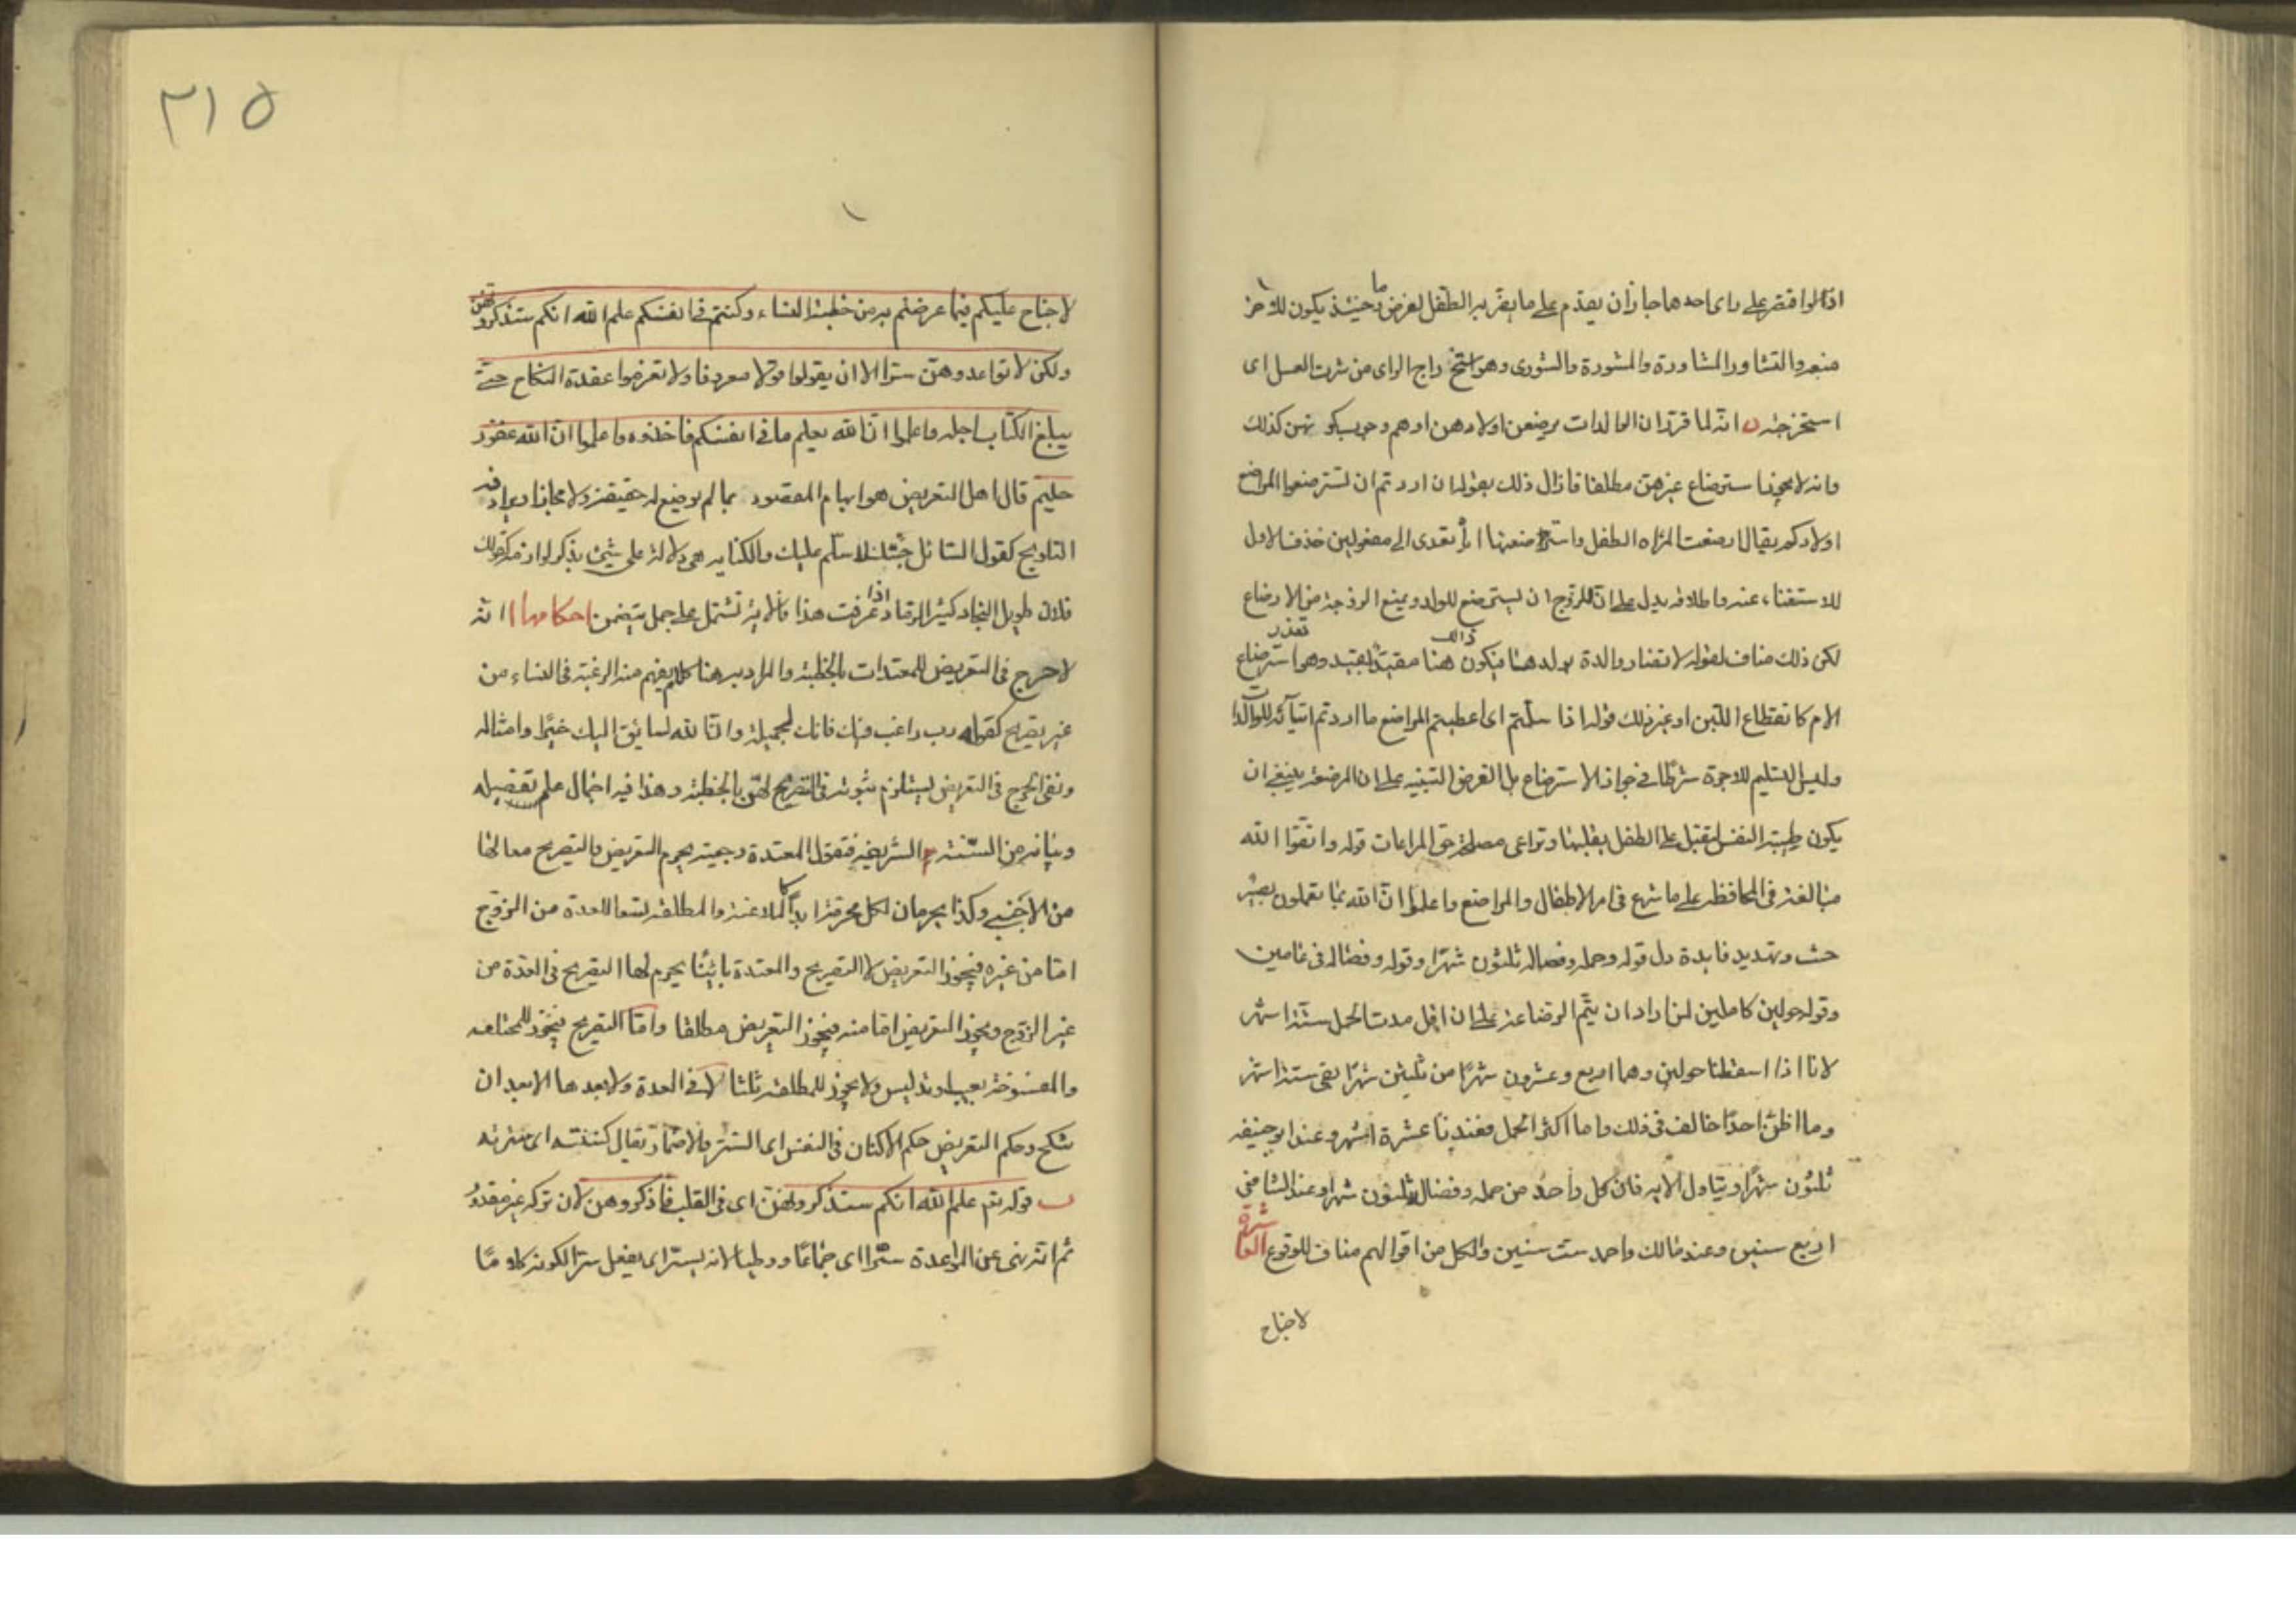 اذ لو اقتصر على راى احدهما جاز ان يقدم على ما يضر به الطفل لغرض ما وحينئذ يكون للاخر
منعه والتشاور المشاورة والمشورة والشورى وهو استخراج الراى من شرت العسل اى
استخرجته ن انه لما قرر ان الوالدات يرضعن اولادهن اوهم وجوب كونهن كذلك
وانه لا يجوز استرضاع غيرهن مطلقا فازال ذلك بقوله ان اردتم ان تسترضعوا المراضع
اولادكم يقال ارضعت المراه الطفل واسترضعتها اياه تعدى الى مفعولين فحذف الاول
للاستغناء عنه واطلاقه يدل على ان للزوج ان يسترضع للولد ويمنع الزوجة من الارضاع
لكن ذلك مناف لقوله لا تضار والدة بولدها فيكون ذالك هنا مقيدا بقيد وهو تعذر استرضاع
الام كانقطاع اللبن او غير ذلك قوله اذا سلمتم اى اعطيتم المراضع ما اردتم ايتآئه للوالدات
وليس التسليم للاجرة شرطا فى جواز الاسترضاع بل الغرض التنبيه على ان المرضعة ينبغى ان
يكون طيبة النفس ليقبل على الطفل بقلبها وتراعى مصلحة حق المراعات قوله واتقوا الله
مبالغة فى المحافظة على ما شرع فى امر الاطفال والمراضع واعلموا ان الله بما تعملون بصير
حث وتهديد فايدة دل قوله وحمله وفصاله ثلثون شهرا وقوله وفصاله فى عامين
وقوله حولين كاملين لمن اراد ان يتم الرضاعة على ان اقل مدت الحمل ستة اشهر
لانا اذا اسقطنا حولين وهما اربع وعشرون شهرا من ثلثين شهرا بقى ستة اشهر
وما اظن احدا خالف فى ذلك واما اكثر الحمل فعندنا عشرة اشهر وعند ابو حنيفه
ثلثون شهرا ويتاول الايه فان كل واحد من حمله وفصاله ثلثون شهرا وعند الشافعى
اربع سنين وعند مالك واحمد ست سنين والكل من اقوالهم مناف للوقوع العاشرة
لا جناح
٢١٥
لا جناح عليكم فيما عرضتم به من خطبة النساء وكننتم فى انفسكم علم الله انكم ستذكرونهن
ولكن لا تواعدوهن سرا الا ان يقولوا قولا معروفا ولا تعزموا عقدة النكاح حتى
يبلغ الكتاب اجله واعلموا ان الله يعلم ما فى انفسكم فاحذروه واعلموا ان الله غفور
حليم قال اهل التعريض هو ايهام المقصود بما لم يوضع له حقيقة ولا مجازا ويرادفه
التلويح كقول السائل جئتك لاسلم عليك والكنايه هى دلالة على شئ بذكر لوازمه كقولك
فلان طويل النجاد كثير الرماد اذا عرفت هذا فالاية تشتمل على جمل يتضمن احكامها ا انه
لا حرج فى التعريض للمعتدات بالخطبة والمراد به هنا كلام يفهم منه الرغبة فى النساء من
غير تصريح كقوله رب راغب فيك فانك لجميلة وان الله لسائق اليك خيرا وامثاله
ونفى الحرج فى التعريض يستلزم ثبوته فى التصريح لهن بالخطبة وهذا فيه اجمال علم تفصيله
وبيانه من السنة الشريفة فنقول المعتدة رجعية يحرم التعريض والتصريح معا لها
من الاجنبى وكذا يحرمان لكل محرمة ابدا كالملاعنة والمطلقة تسعا للعدة من الزوج
اما من غيره فيجوز التعريض لا التصريح والمعتدة بائنا يحرم لها التصريح فى العدة من
غير الزوج ويجوز التعريض اما منه فيجوز التعريض مطلقا واما التصريح فيجوز للمختلعه
والمفسوخة بعيب او تدليس ولا يجوز للمطلقة ثلثا لا فى العدة ولا بعدها الا بعد ان
تنكح وحكم التعريض حكم الاكنان فى النفس اى الستر والاضمار يقال كننته اى سترته
ب قوله تع علم الله انكم ستذكرونهن اى فى القلب فاذكروهن لان تركه غير مقدور
ثم انه نهى عن المواعدة سرا اى جماعا ووطيا لانه يسر اى يفعل سرا لكونه كلاما